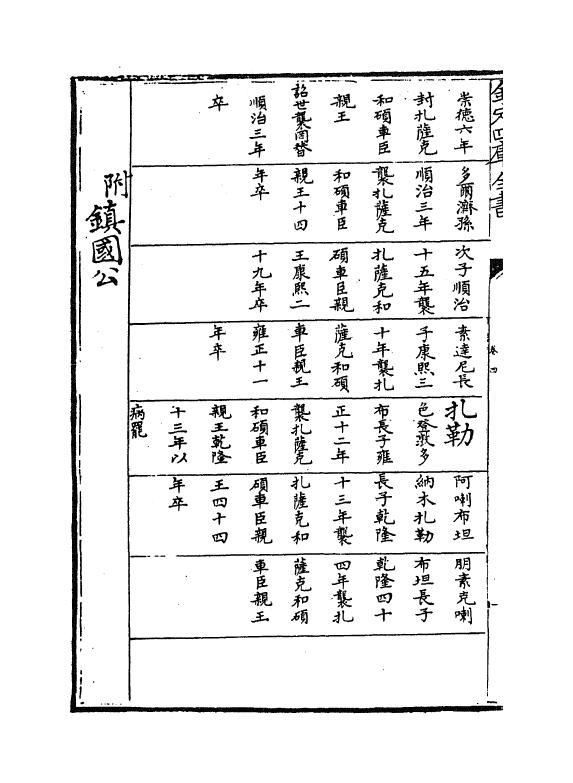 欽定四庫全書
卷四
崇德六年
封扎薩克
和碩車臣
親王
詔世襲罔替
順治三年
卒
多爾濟孫
順治三年
襲扎薩克
和碩車臣
親王十四
年卒
次子順治
十五年襲
扎薩克和
碩車臣親
王康熙二
十九年卒
素達尼長
子康熙三
十年襲扎
薩克和碩
車臣親王
雍正十一
年卒
扎勒
色登敦多
布長子雍
正十二年
襲扎薩克
和碩車臣
親王乾隆
十三年以
病罷
阿喇布坦
納木扎勒
長子乾隆
十三年襲
扎薩克和
碩車臣親
王四十四
年卒
朋素克喇
布坦長子
乾隆四十
四年襲扎
薩克和碩
車臣親王
附鎮國公